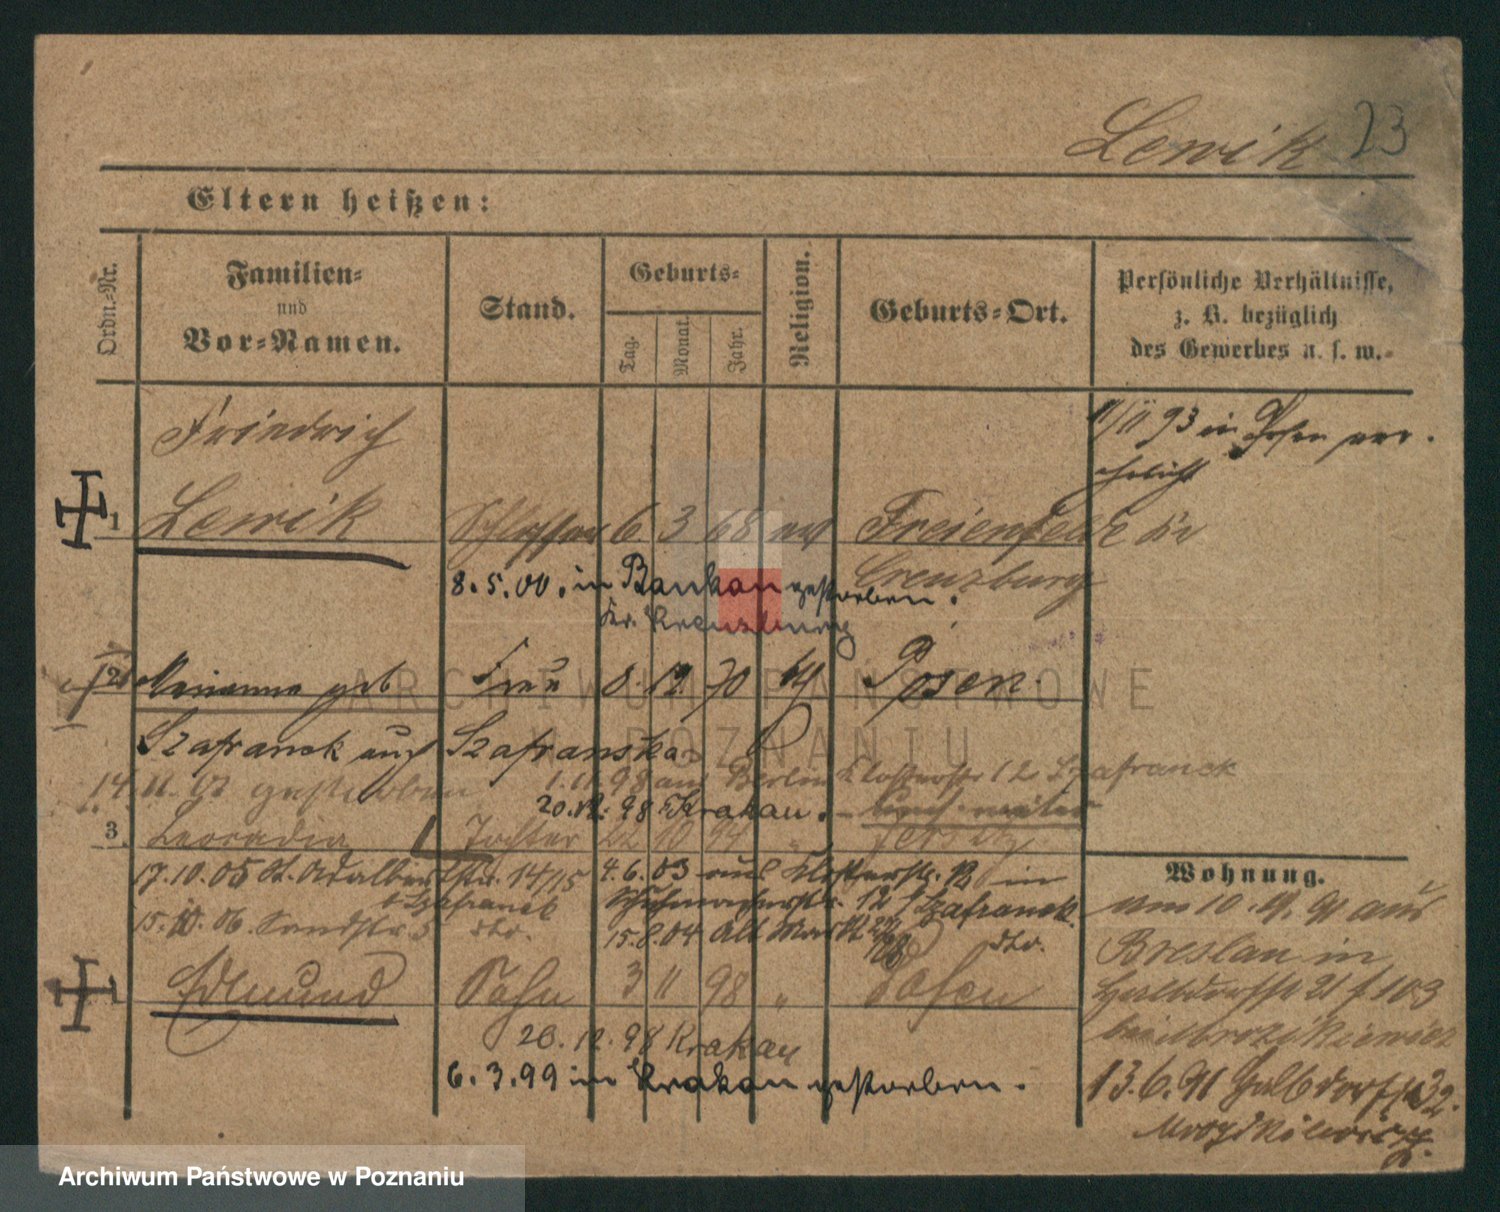 Lewik 23
Eltern heißen:
Ordn.-Nr.
Familien-
und
Vor-Namen.
Stand.
Geburts-
Tag.
Monat.
Jahr.
Religion.
Geburts-Ort.
Persönliche Verhältnisse,
z. B. bezüglich
des Gewerbes u. s. w.
Friedrich
11/11 93 in Posen ver-
ehelicht
1 Lewik Schlosser 6 3 68 Freienfelde
Creuzburg
8.5.00. in Bankau gestorben.
Kr. Kreuzburg
2 Marianna geb Frau 8. 12. 70 Posen.
Szafranek auch Szafranska
14. 11. 07 gestorben
1.11.98 aus Berlin Klosterstr 12 Szafranek
20.12.98 Krakau.
3 Leocadia Tochter 22 10 94 " Jersitz
17.10.05 St. Adalbertstr. 14/15
b Szafranek
15. 10. 06. Sandstr 5 dto.
4.6.03 aus Klosterstr. in
Schuhmacherstr. 12 b/ Szafranek
15.8.04 Alt Markt dto.
Edmund Sohn 3 11 98 " Posen
20.12.98 Krakau
6.3.99 in Krakau gestorben.
Wohnung.
am 10. 4. 91 aus
Breslau in
Halbdorfstr 21 b 103
13.6.91 Halbdorfstr 32.
ARCHIWUM PAŃSTWOWE
W POZNANIU
Archiwum Państwowe w Poznaniu